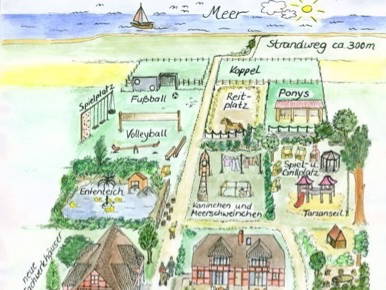 Meer
Strandweg ca. 300m
Koppel
Spielplatz
Fußball
Reit-
platz
Ponys
Volleyball
Spiel- u.
Grillplatz
Ententeich
Kaninchen und
Meerschweinchen
Tarzanseil
neue
Fachwerkhäuser